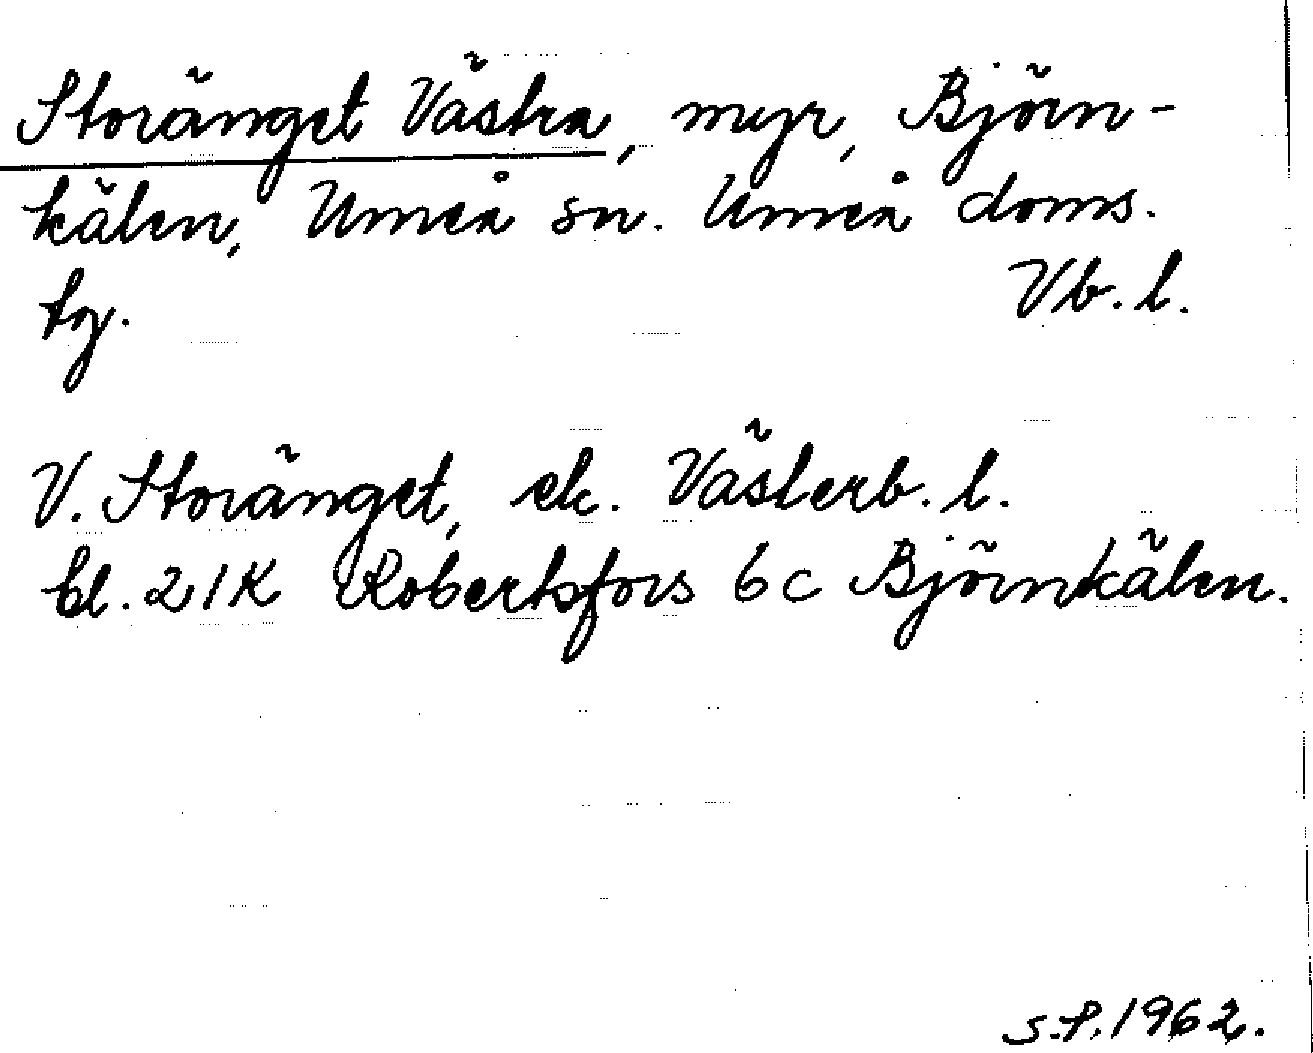 Storänget Västra, myr, Björn-
kälen, Umeå sn. Umeå doms.
tg. Vb. l.
V. Storänget, ek. Västerb. l.
bl. 21K Robertsfors 6 c Björnkälen.
S.P. 1962.